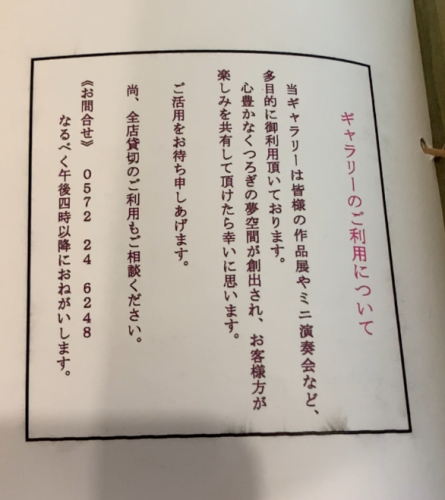 ギャラリーのご利用について
当ギャラリーは皆様の作品展やミニ演奏会など、
多目的に御利用頂いております。
心豊かなくつろぎの夢空間が創出され、お客様方が
楽しみを共有して頂けたら幸いに思います。
ご活用をお待ち申しあげます。
尚、全店貸切のご利用もご相談ください。
《お問合せ》 0572 24 6248
なるべく午後四時以降におねがいします。